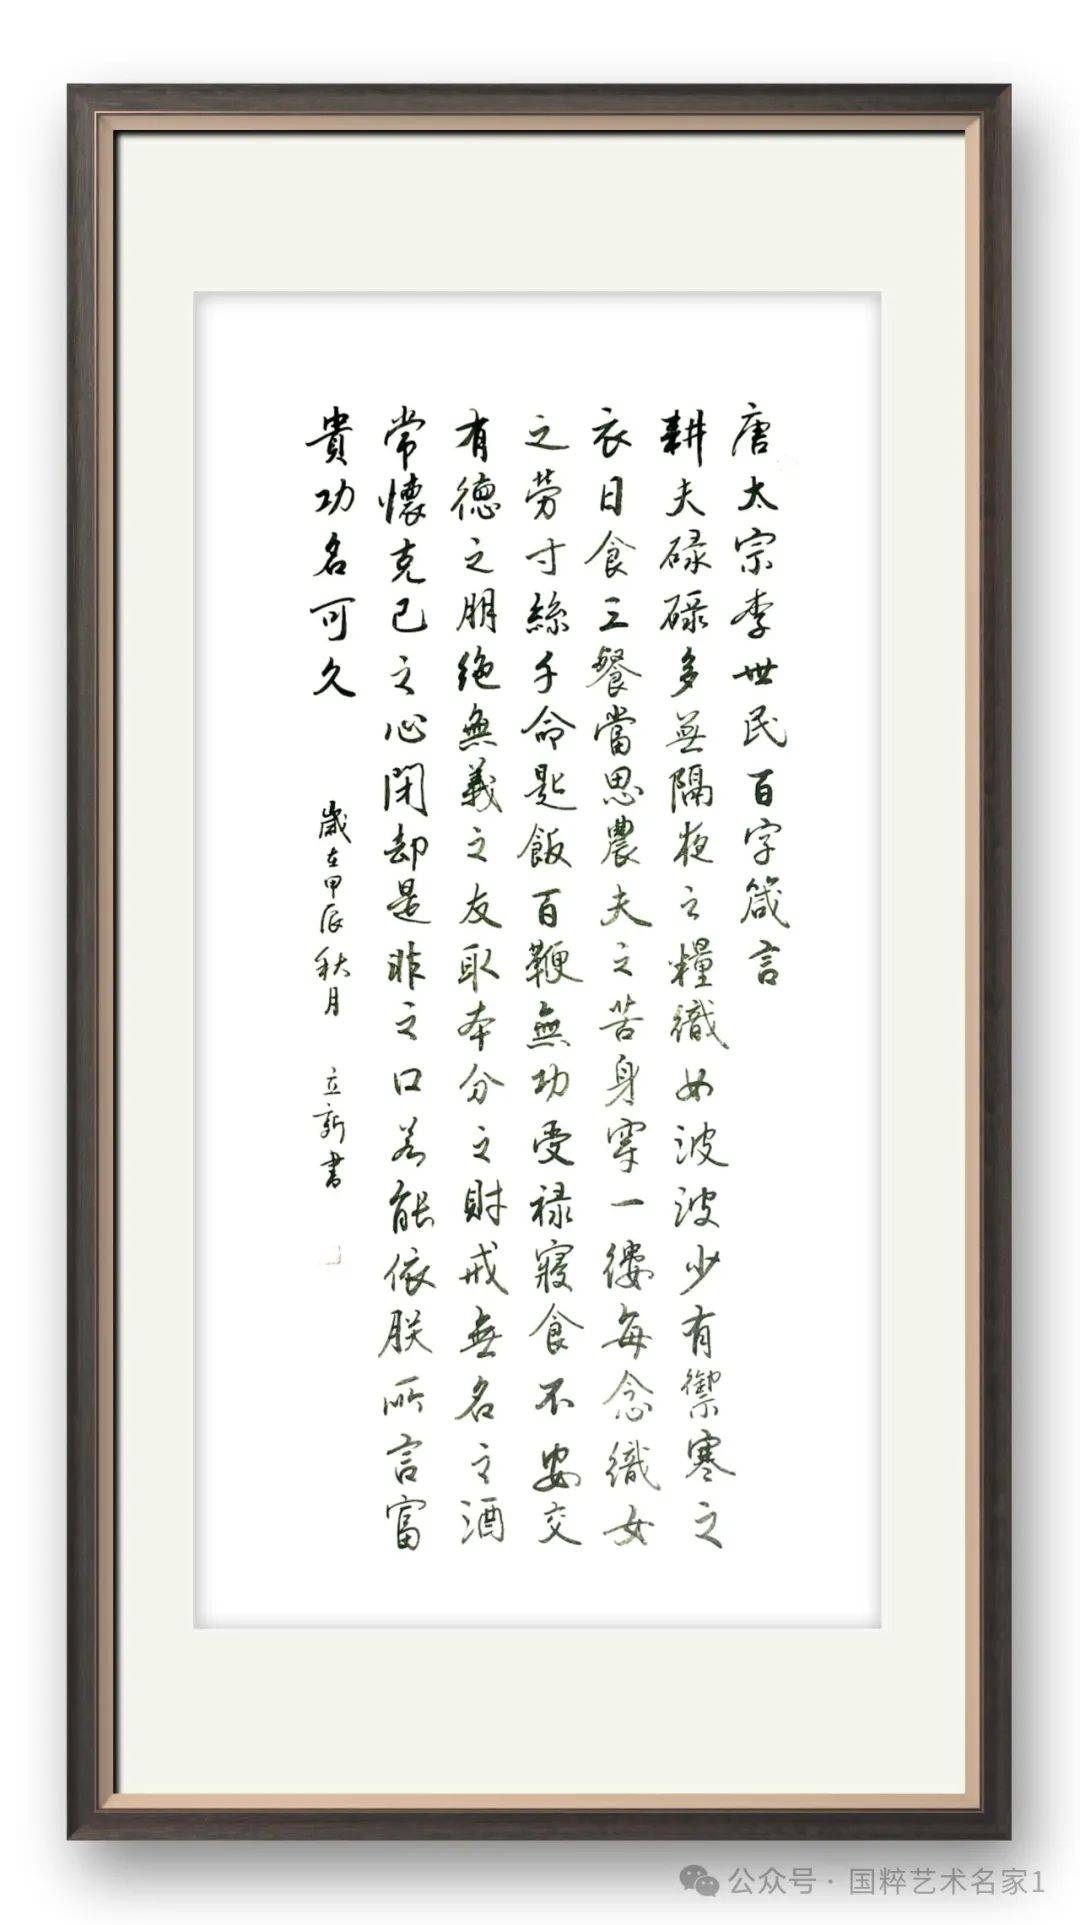 唐太宗李世民百字箴言
耕夫碌碌多無隔夜之糧織女波波少有禦寒之
衣日食三餐當思農夫之苦身穿一縷每念織女
之勞寸絲千命匙飯百鞭無功受禄寢食不安交
有德之朋绝無義之友取本分之財戒無名之酒
常懷克己之心閉却是非之口若能依朕所言富
貴功名可久
歲在甲辰秋月 立新書
公众号·国粹艺术名家1